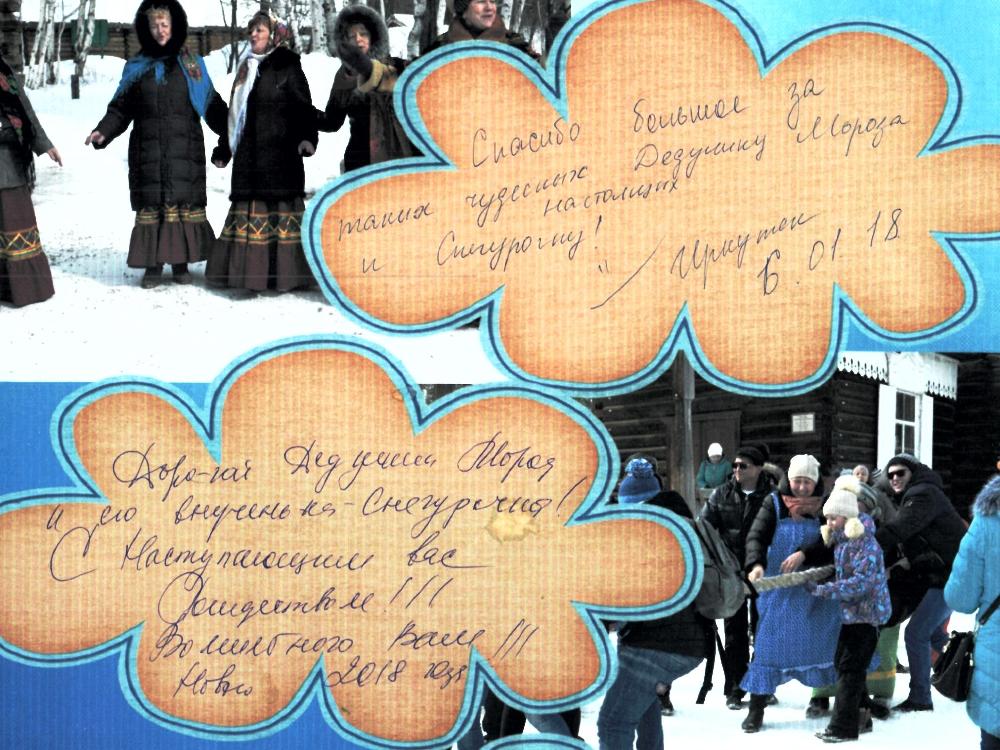 Спасибо большое за
таких чудесных Дедушку Мороза
настоящих
и Снегурочку!
Иркутск
6.01.18
Дорогой Дедушка Мороз
и его внученька-Снегурочка!
С Наступающим вас
Рождеством!!!
Волшебного Вам!!!
Нового 2018 года